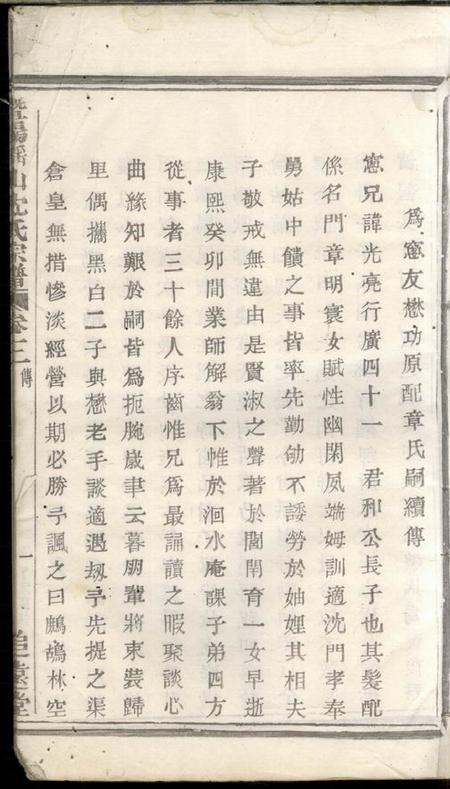 為窓友懋功原配章氏嗣續傳
窓兄諱光亮行廣四十一　君和公長子也其髮配
係名門章明寰女賦性幽閑夙端姆訓適沈門孝奉
舅姑中饋之事皆率先勤劬不諉勞於妯娌其相夫
子敬戒無違由是賢淑之聲著於閫閈育一女早逝
康熙癸卯間業師解翁下帷於洄水庵課子弟四方
從事者三十餘人序齒惟兄為最誦讀之暇聚談心
曲緣知艱於嗣皆為扼腕嵗聿云暮朋輩將束裝歸
里偶攜黑白二子與懋老手談適遇刼予先提之渠
倉皇無措慘淡經營以期必勝予諷之曰鷓鴣林空
山沈氏宗譜
卷三
傳
一
堂